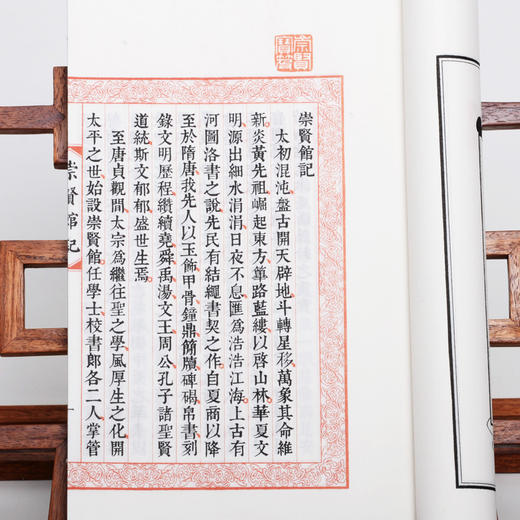 崇賢館記
太初混沌盤古開天辟地斗轉星移萬象其命維
新炎黃先祖崛起東方篳路藍縷以啓山林華夏文
明源出細水涓涓日夜不息匯爲浩浩江海上古有
河圖洛書之說先民有結繩書契之作自夏商以降
至於隋唐我先人以玉飾甲骨鐘鼎簡牘碑碣帛書刻
錄文明歷程纘續堯舜禹湯文王周公孔子諸聖賢
道統斯文郁郁盛世生焉
至唐貞觀間太宗爲繼往聖之學風厚生之化開
太平之世始設崇賢館任學士校書郎各二人掌管
崇賢館記
一